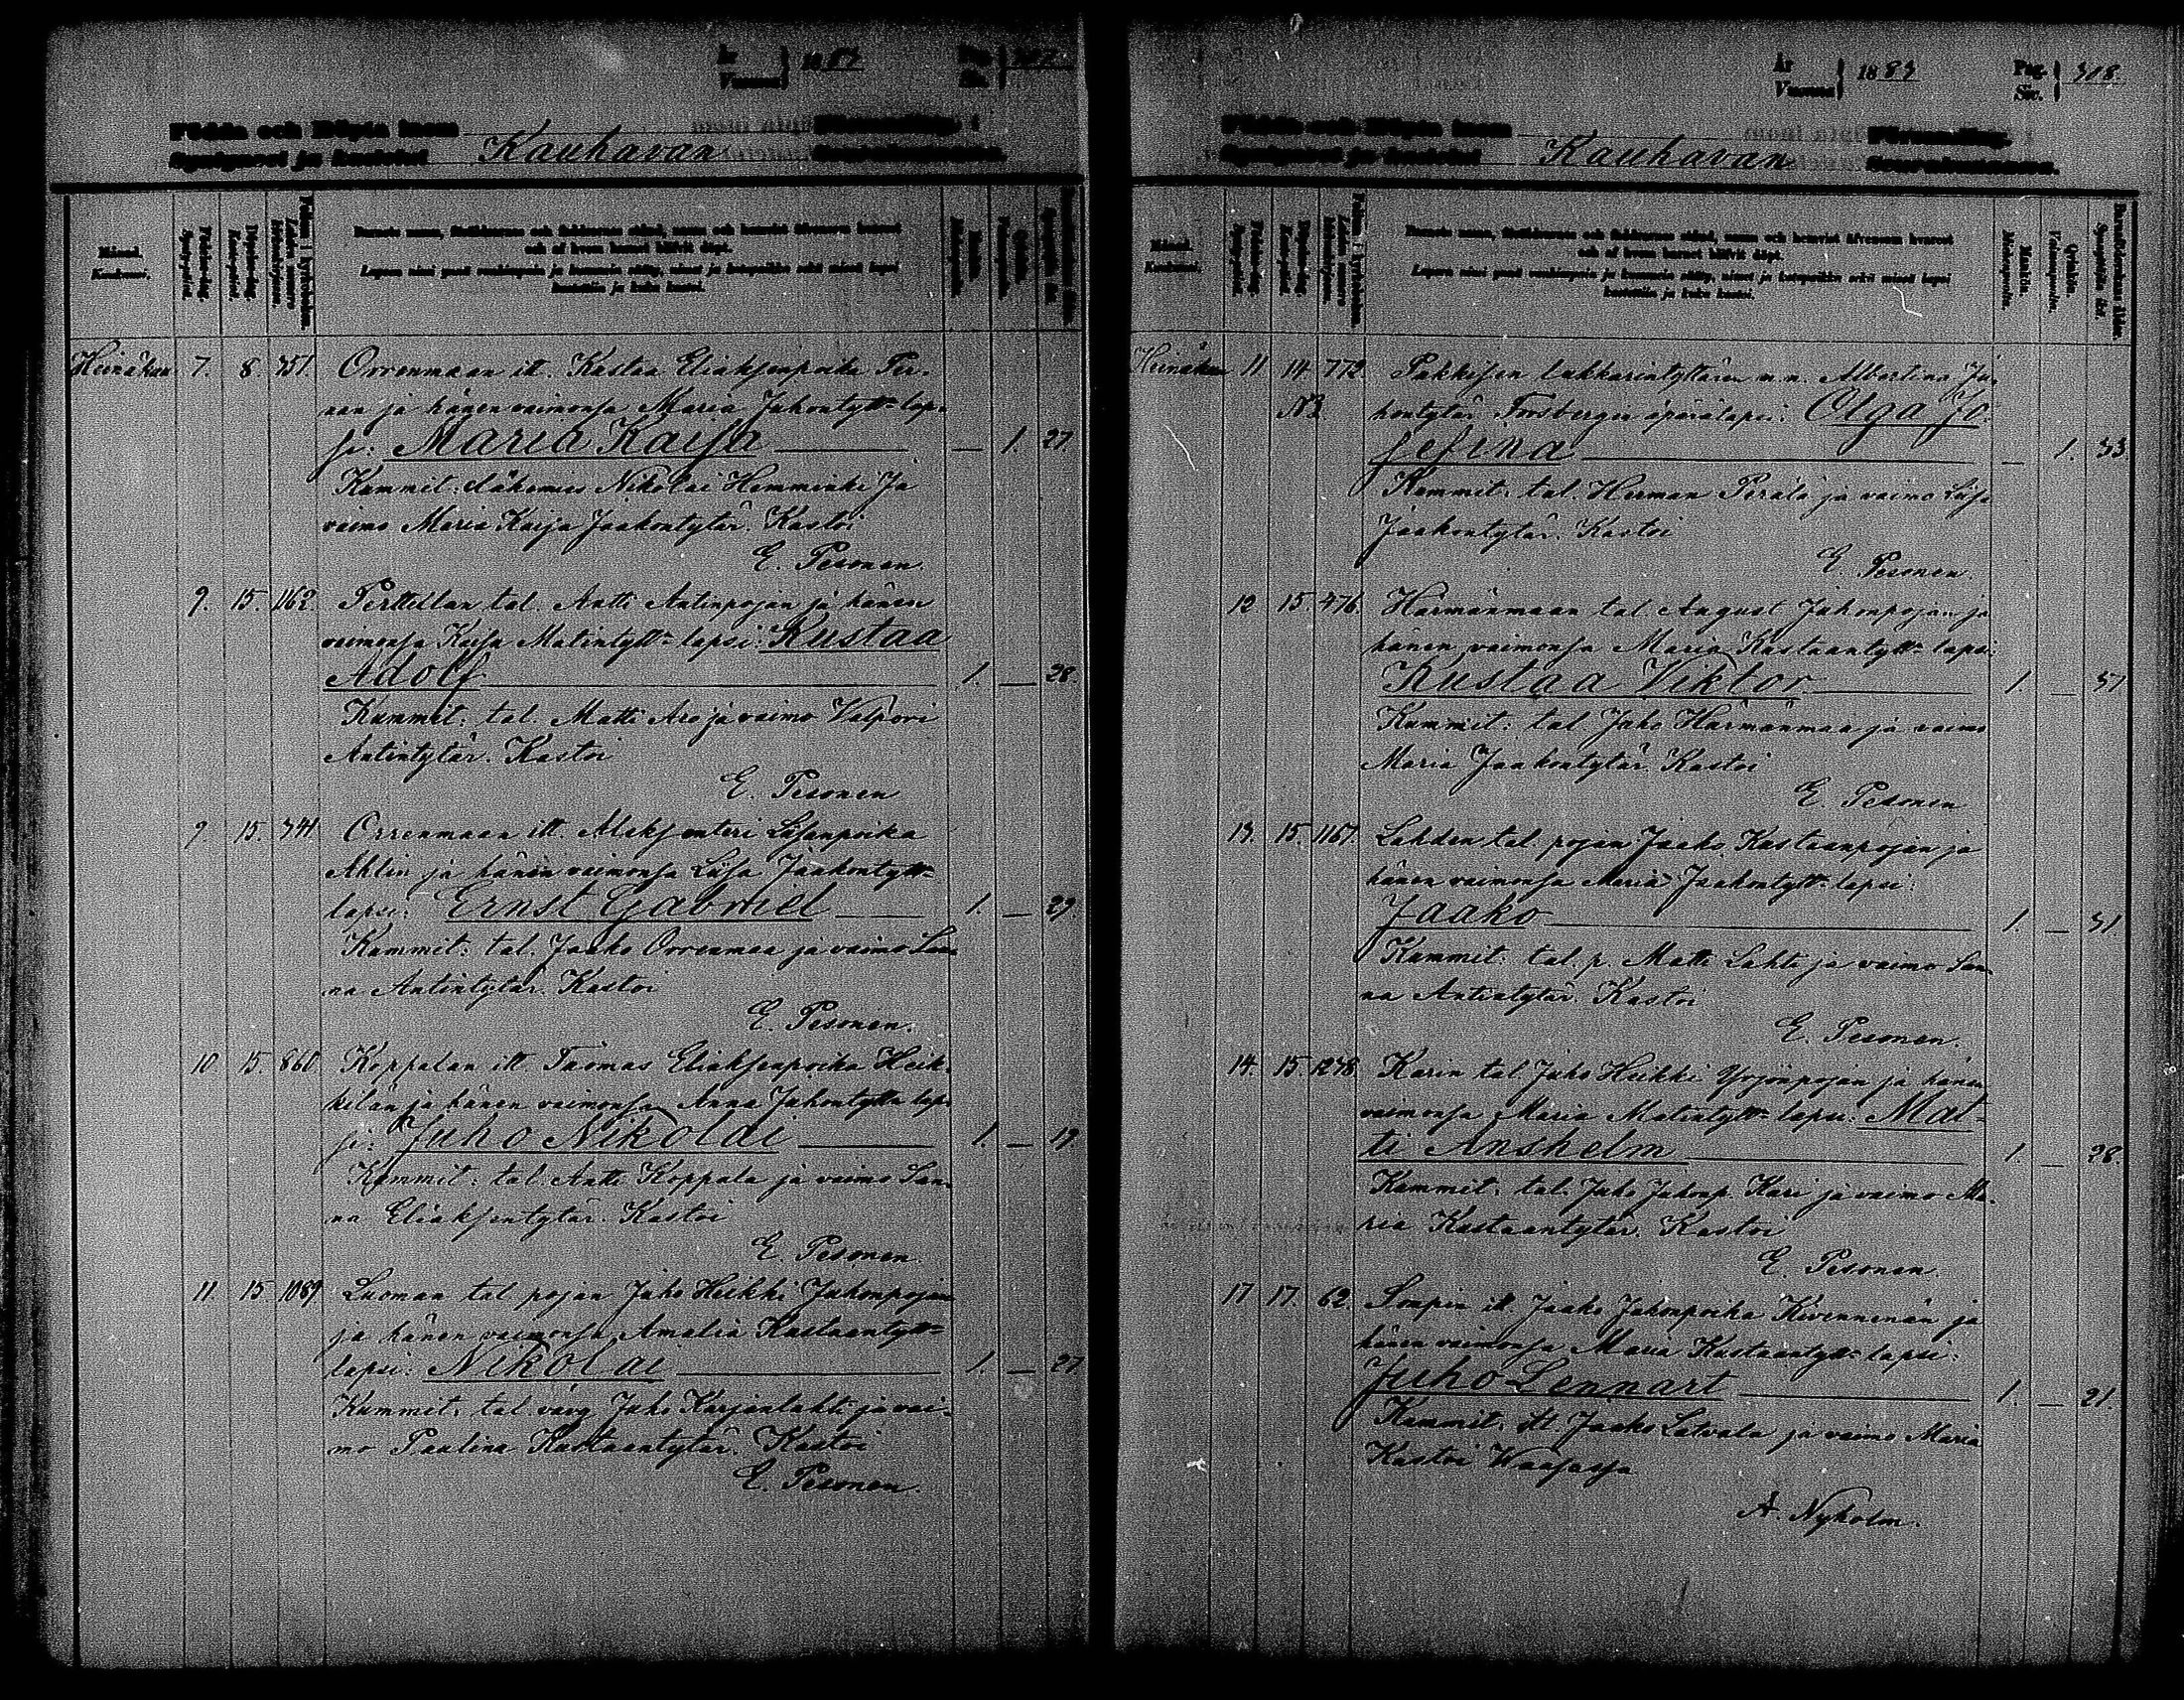 År
Vuonna } 1883
Födde och Döpte inom
Syntyneet ja kastetut Kauhavan
Månad.
Kuukausi.
Födelsedag.
Syntypäivä.
Döpelsedag.
Kastepäivä.
Barnets namn, föräldrarnas och faddrarnas stånd, namn och hemvist äfvensom hvarest
och af hvem barnet blifvit döpt.
Lapsen nimi
Heinäkuu 7. 8. 751. Orrenmaan itl. Kustaa Eliaksenpoika Fer-
nan ja hänen vaimonsa Maria Juhontytt. lap-
si: Maria Kaisa — 1. 27.
Kummit: Nikolai Hemminki ja
vaimo Maria Kaisa Jaakontytär. Kastoi
E. Pesonen.
9. 15. 1162. Perttellan tal. Antti Antinpojan ja hänen
vaimonsa Kaisa Matintytt. lapsi: Kustaa
Adolf 1. — 28.
Kummit: tal. Matti Aro ja vaimo Valpori
Antintytär. Kastoi
E. Pesonen
9. 15. 741. Orrenmaan itl. Aleksanteri Liisanpoika
Ahlin ja hänen vaimonsa Liisa Jaakontytt.
lapsi: Ernst Gabriel 1. — 29.
Kummit: tal. Jaako Orrenmaa ja vaimo San-
na Antintytär. Kastoi
E. Pesonen.
10 15. 860 Koppalan itl Tuomas Eliaksenpoika Heik-
kilän ja hänen vaimonsa Anna Juhontytt. lap-
si: Juho Nikolai 1. — 19
Kummit: tal. Antti Koppala ja vaimo San-
na Eliaksentytär. Kastoi
E. Pesonen.
11 15 1089 Luoman tal pojan Juho Heikki Juhonpojan
ja hänen vaimonsa Amalia Kustaantytt.
lapsi: Nikolai 1. — 27
Kummit: tal. vävy Juho Karjanlahti ja vai-
mo Paulina Kustaantytär. Kastoi
E. Pesonen.
År
Vuonna } 1883
Pag.
Siv. } 318.
Födde och Döpte inom
Syntyneet ja kastetut Kauhavan
Församling.
Seurakunnassa.
Månad.
Kuukausi.
Födelsedag.
Syntypäivä.
Döpelsedag.
Kastepäivä.
Barnets namn, föräldrarnas och faddrarnas stånd, namn och hemvist äfvensom hvarest
och af hvem barnet blifvit döpt.
Mankön.
Miehenpuolia.
Qvinkön.
Vaimonpuolia.
Heinäkuu 11 14. 772. Pukkisen lukkarintyttären n.n. Albertina Ju-
hontytär Forsbergin äpärälapsi: Olga Jo-
sefina — 1. 33.
Kummit: tal. Herman Perälä ja vaimo Liisa
Jaakontytär. Kastoi
E. Pesonen.
12 15. 476. Härmänmaan tal. August Juhonpojan ja
hänen vaimonsa Maria Kustaantytt. lapsi:
Kustaa Viktor 1. — 37
Kummit: tal Juho Härmänmaa ja vaimo
Maria Jaakontytär. Kastoi
E. Pesonen
13. 15. 1167. Lahden tal. pojan Jaako Kustaanpojan ja
hänen vaimonsa Maria Jaakontytt. lapsi:
Jaako 1. — 31
Kummit: tal. p. Matti Lahti ja vaimo San-
na Antintytär. Kastoi
E. Pesonen.
14. 15 1278 Karin tal. Juho Heikki Yrjönpojan ja hänen
vaimonsa Maria Matintytt. lapsi: Mat-
ti Anshelm 1. — 28.
Kummit: tal. Juho Juhonp. Kari ja vaimo Ma-
ria Kustaantytär. Kastoi
E. Pesonen.
17 17. 62. Soupin itl. Jaako Juhonpoika Kivennenän ja
hänen vaimonsa Maria Kustaantytt. lapsi:
Juho Lennart 1. — 21.
Kummit: itl. Jaako Latvala ja vaimo Maria
Kastoi Waasassa
A. Nyholm.